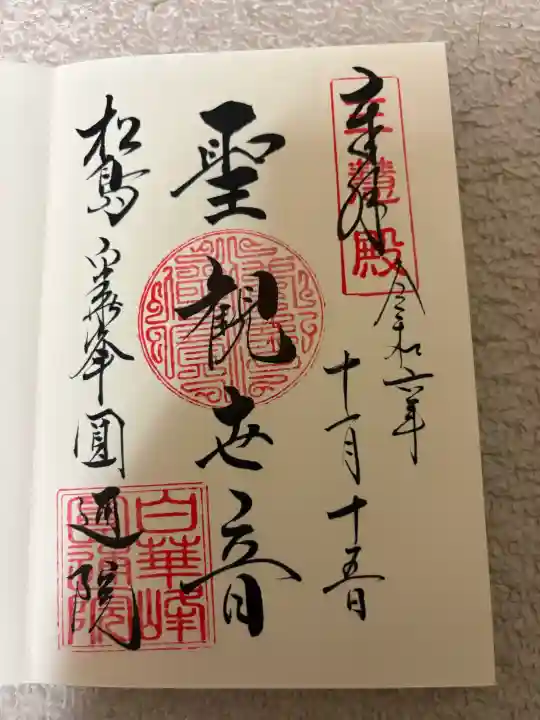 奉拝
三慧殿
令和六年
十一月十五日
聖観世音
松島白華峯圓通院
白華峰
圓通院